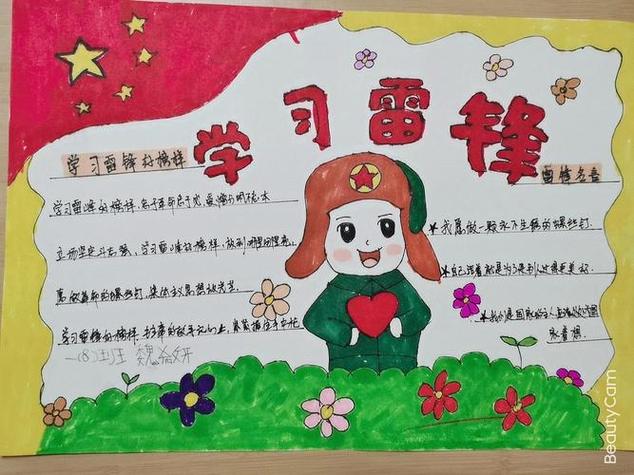 学习雷锋
学习雷锋好榜样
学习雷锋好榜样,忠于革命忠于党,爱憎分明不忘本
立场坚定斗志强,学习雷锋好榜样,放到哪里哪里亮。
愿做革命的螺丝钉,集体主义思想放光芒。
学习雷锋好榜样
一(8)班 魏
雷锋名言
★我愿做一颗永不生锈的螺丝钉.
★自己活着就是为了使别人过得更美好.
永
BeautyCam